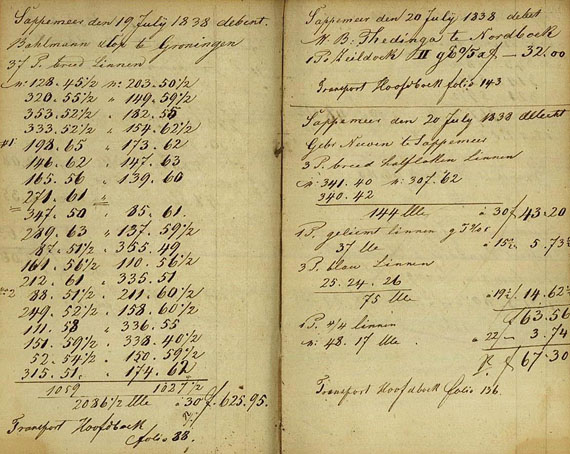 Sappemeer den 19 July 1838 debent.
Bahlmann & Co te Groningen
37 P. breed Linnen
n: 128. 45½ n: 203. 50½
320. 55½ " 149. 59½
353. 52½ " 182. 55
333. 52½ " 154. 62½
#1 198. 65 " 173. 62
146. 62 " 147. 63
165. 56 " 139. 60
271. 61 "
347. 50 " 85. 61.
289. 63 " 137. 59½
87. 51½ " 355. 49
161. 56½ " 110. 56½
212. 61 " 335. 51
2 88. 51½ " 211. 60½
249. 52½ " 158. 60½
111. 58 " 336. 55
151. 59½ " 338. 40½
52. 54½ " 150. 59½
315. 51. " 174. 62
1059 1027½
2086½ Elle a 30 f. 625.95.
Transport Hoofdboek
folio 88.
Sappemeer den 20 July 1838 debet
H. B. Thedinga te Nordboek
1 P. Keildoek III g 695 a f. – 32.00
Transport Hoofdboek folio 143
Sappemeer den 20 July 1838 debent
Gebr Neeven te Sappemeer
3 P. breed Halflaken Linnen
n: 341. 40 n: 307. 62
340. 42
144 Elle a 30 f 43.20
1 P. geliemt linnen g
37 Elle a 15½ 5.73½
3 P. blau Linnen
25. 24. 26
75 Elle a 19½ f 14.62½
f 63.56
1 P. 4/4 linnen
n: 48. 17 Elle a 22 3.74
f 67.30
Transport Hoofdboek folio 136.